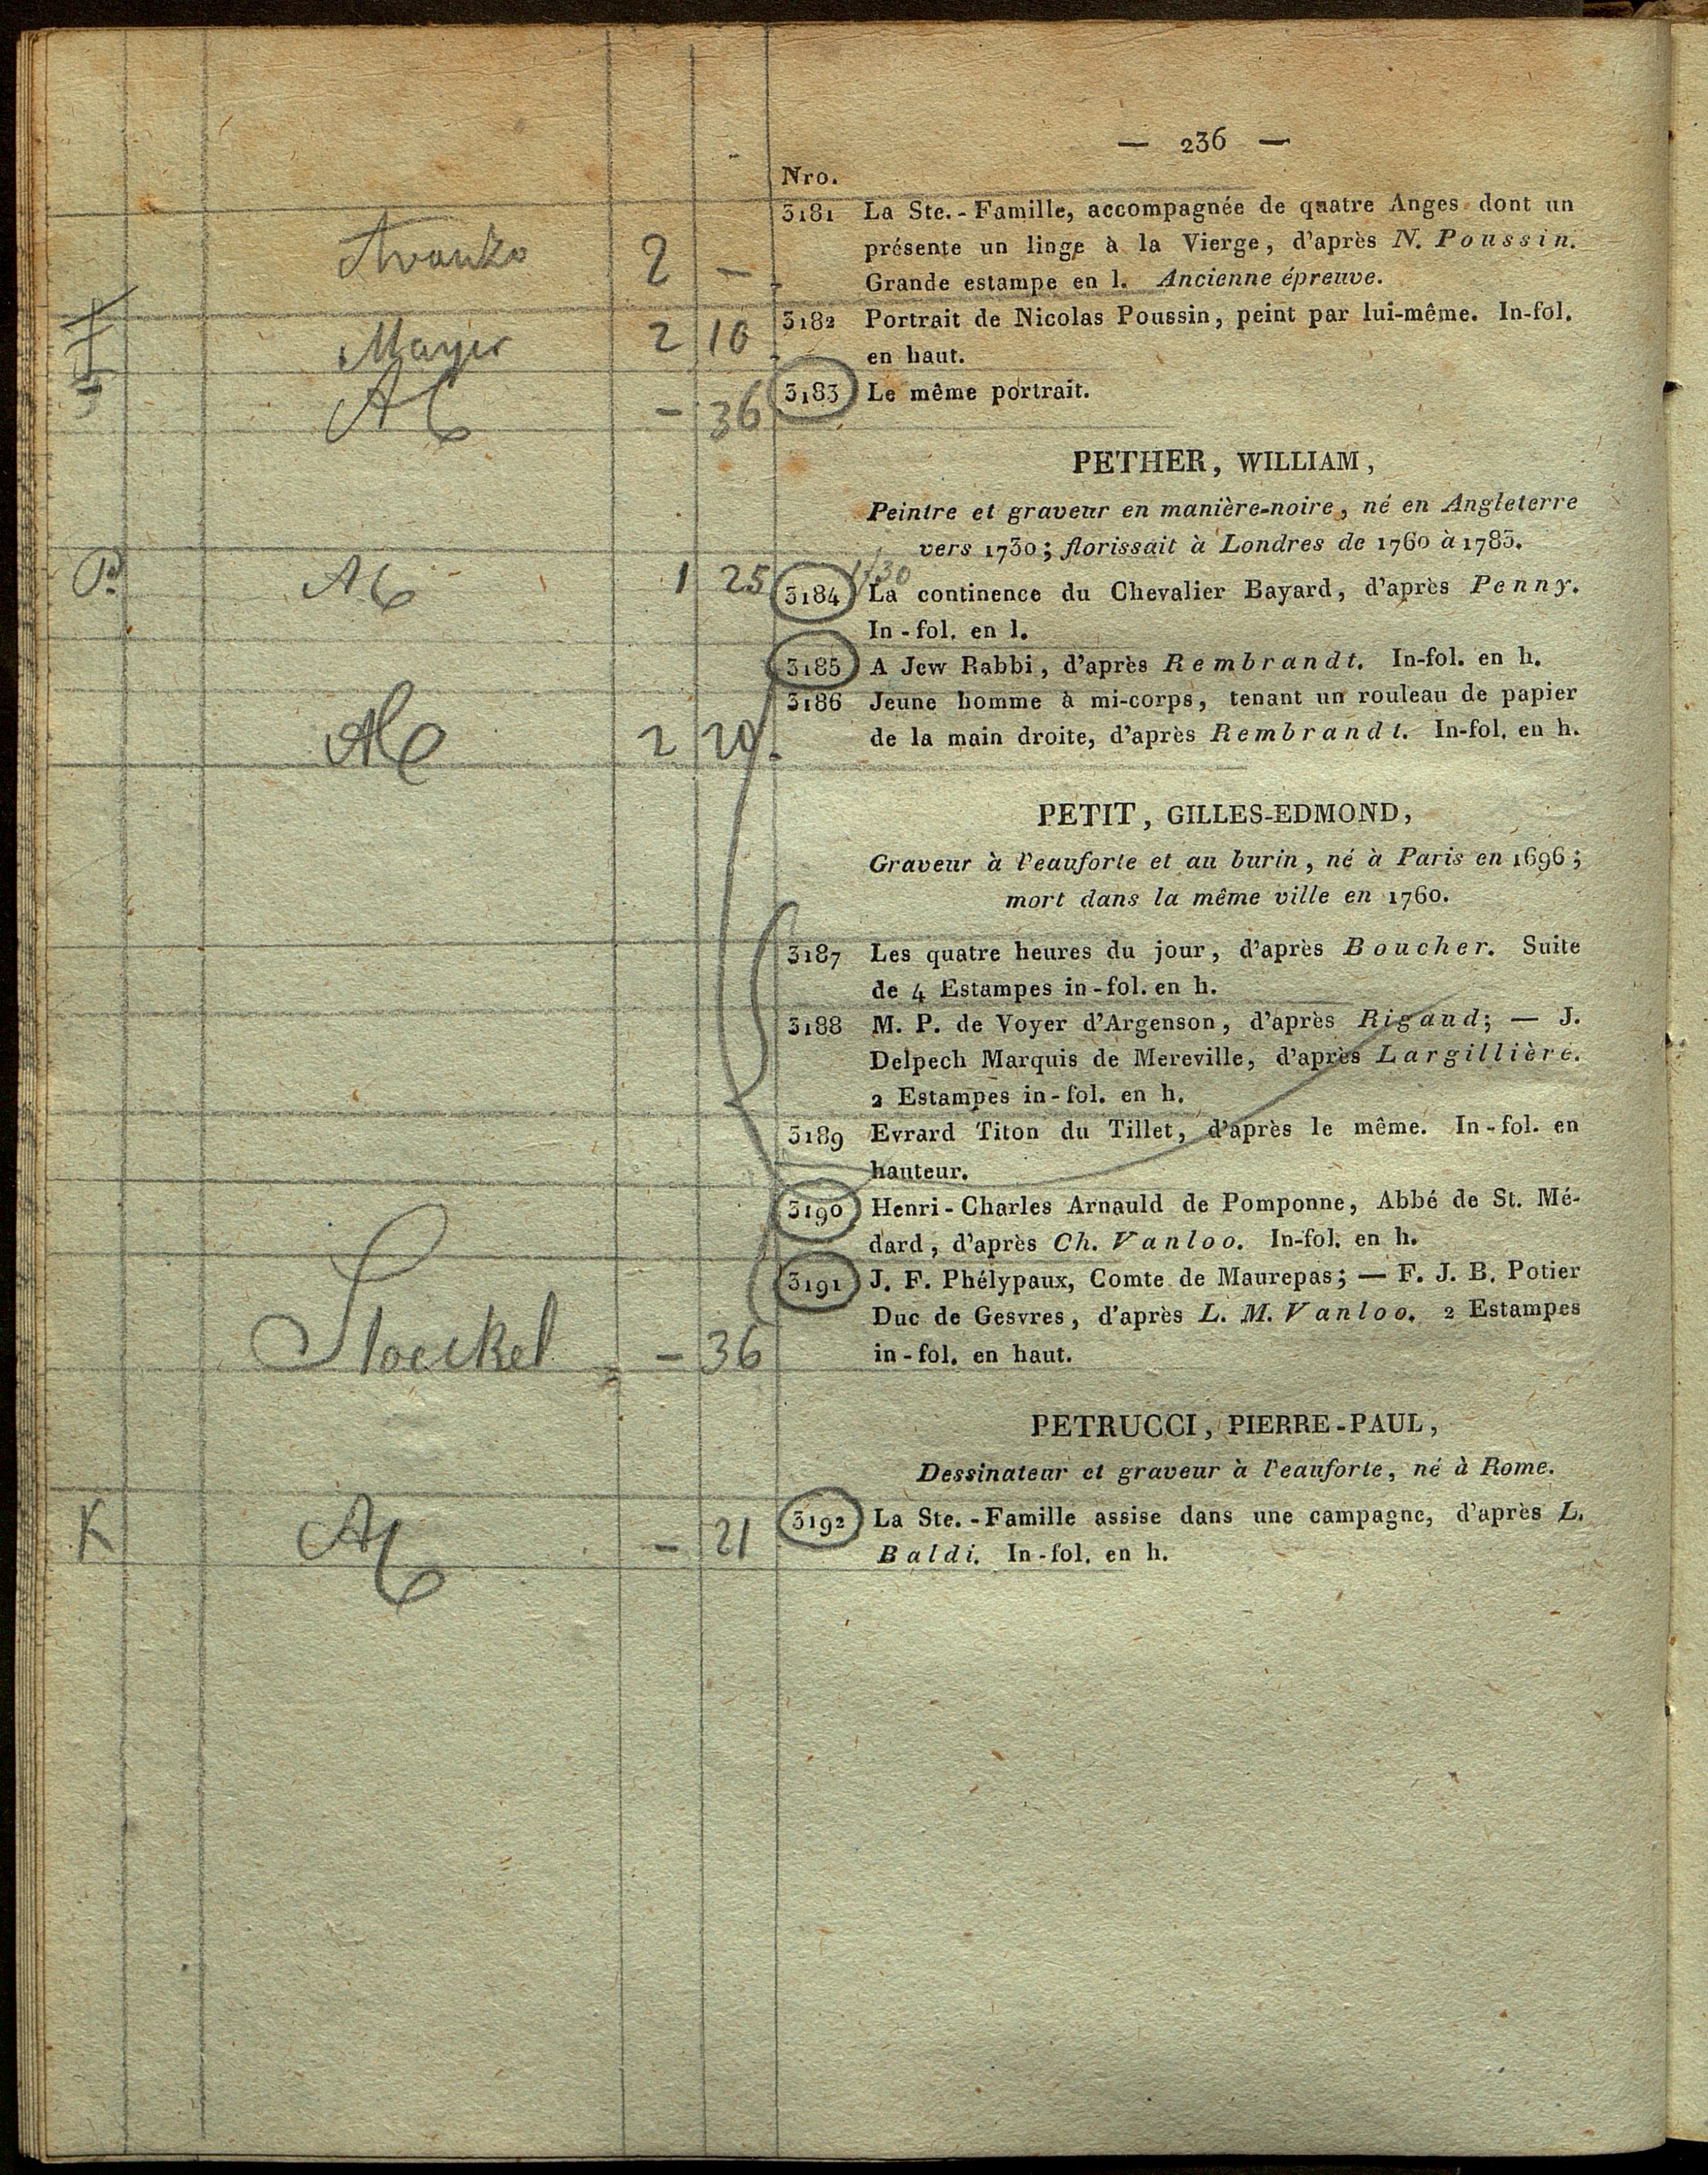 — 236 —
Nro.
3181 La Ste.-Famille, accompagnée de quatre Anges dont un
présente un linge à la Vierge, d'après N. Poussin.
2 —
Grande estampe en l. Ancienne épreuve.
Mayer 2 10
3182 Portrait de Nicolas Poussin, peint par lui-même. In-fol.
en haut.
— 36
3183 Le même portrait.
PETHER, WILLIAM,
Peintre et graveur en manière-noire, né en Angleterre
vers 1730; florissait à Londres de 1760 à 1785.
1 25
3184 La continence du Chevalier Bayard, d'après Penny.
In-fol. en l.
3185 A Jew Rabbi, d'après Rembrandt. In-fol. en h.
3186 Jeune homme à mi-corps, tenant un rouleau de papier
2 20
de la main droite, d'après Rembrandt. In-fol. en h.
PETIT, GILLES-EDMOND,
Graveur à l'eauforte et au burin, né à Paris en 1696;
mort dans la même ville en 1760.
3187 Les quatre heures du jour, d'après Boucher. Suite
de 4 Estampes in-fol. en h.
3188 M. P. de Voyer d'Argenson, d'après Rigaud; — J.
Delpech Marquis de Mereville, d'après Largillière.
2 Estampes in-fol. en h.
3189 Evrard Titon du Tillet, d'après le même. In-fol. en
hauteur.
3190 Henri-Charles Arnauld de Pomponne, Abbé de St. Mé-
dard, d'après Ch. Vanloo. In-fol. en h.
3191 J. F. Phélypaux, Comte de Maurepas; — F. J. B. Potier
Duc de Gesvres, d'après L. M. Vanloo. 2 Estampes
Stoeckel — 36
in-fol. en haut.
PETRUCCI, PIERRE-PAUL,
Dessinateur et graveur à l'eauforte, né à Rome.
K — 21
3192 La Ste.-Famille assise dans une campagne, d'après L.
Baldi. In-fol. en h.